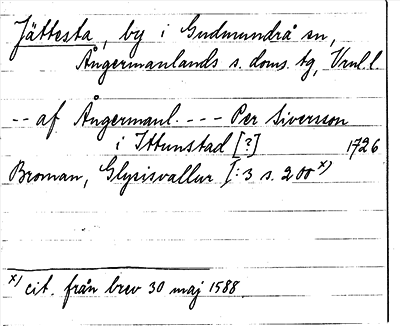 Jättesta, by i Gudmundrå sn,
Ångermanlands s. doms. tg, Vnl. l
-- af Ångermanl. --- Per Siversson
i Ittunstad [?] 1726
Broman, Glysisvallur I: 3 s. 200 x)
x) cit. från brev 30 maj 1588.